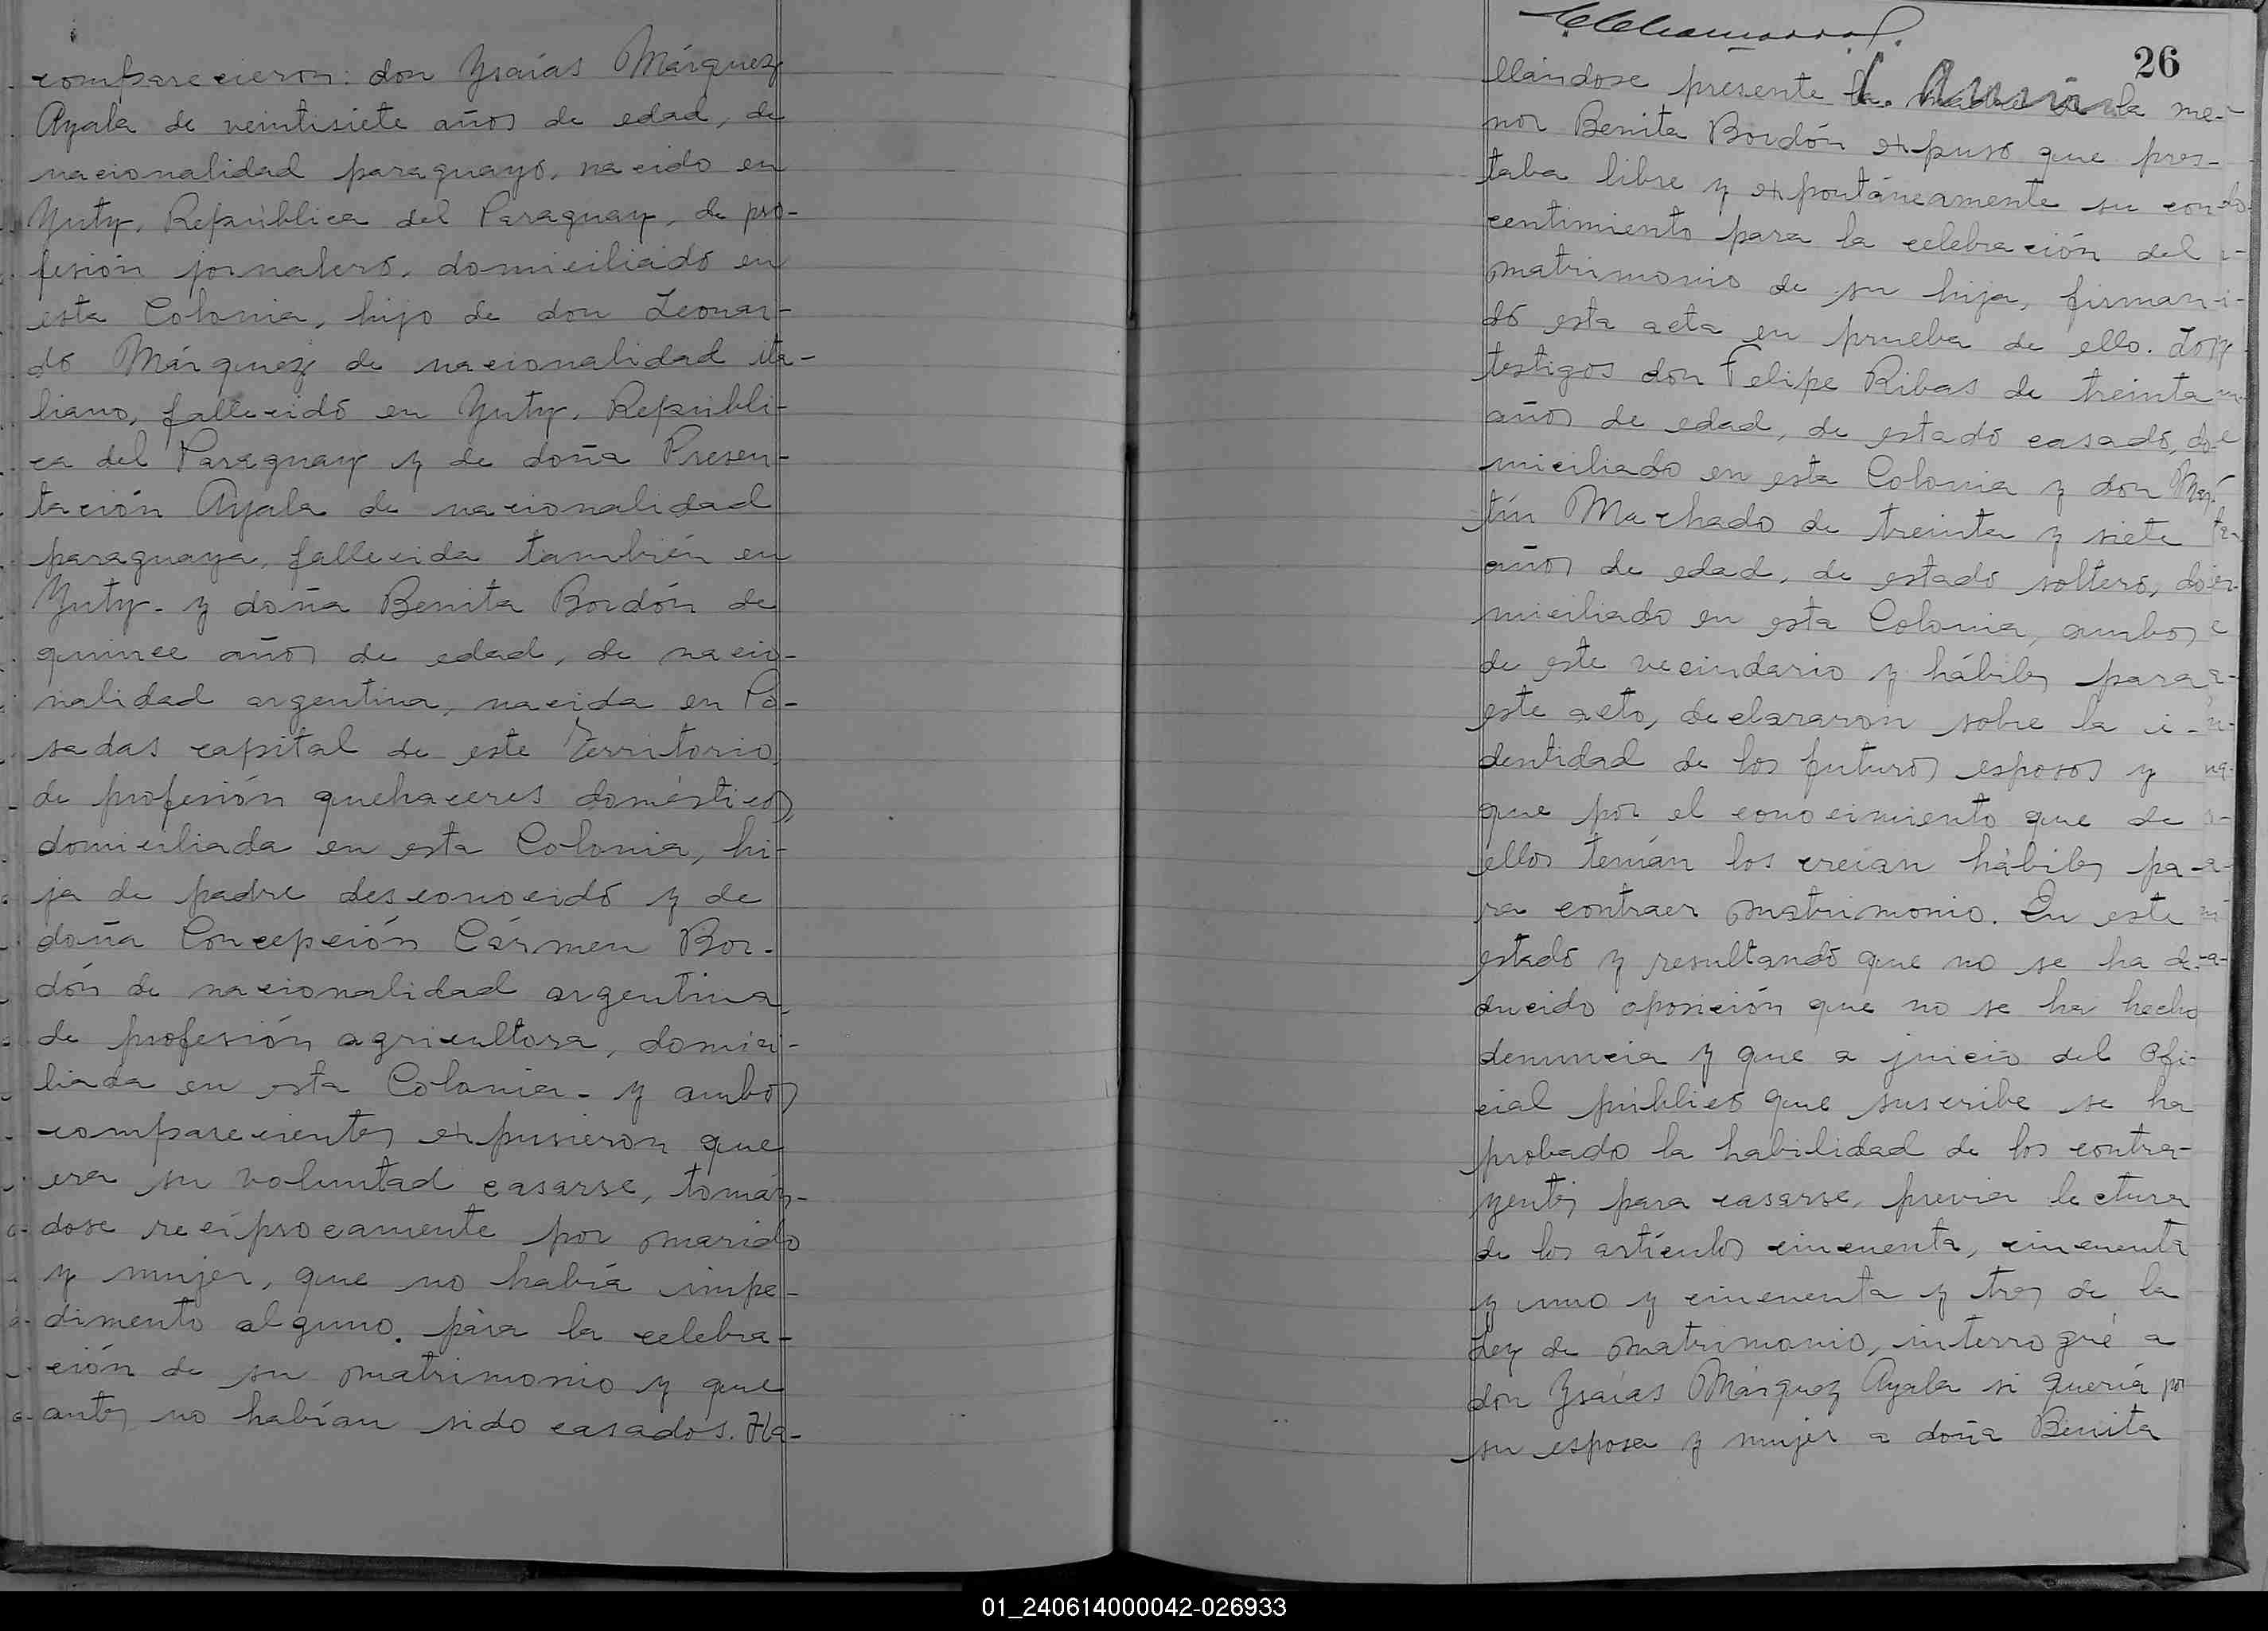 comparecieron: don Ysaías Márquez
Ayala de veintisiete años de edad, de
nacionalidad paraguayo, nacido en
Yuty, República del Paraguay, de pro-
fesión jornalero, domiciliado en
esta Colonia, hijo de don Leonar-
do Márquez de nacionalidad ita-
liano, fallecido en Yuty, Repúbli-
ca del Paraguay y de doña Presen-
tación Ayala de nacionalidad
paraguaya, fallecida también en
Yuty- y doña Benita Bordón de
quince años de edad, de nacio-
nalidad argentina, nacida en Po-
sadas capital de este Territorio,
de profesión quehaceres domésticos,
domiciliada en esta Colonia, hi-
ja de padre desconocido y de
doña Concepción Cármen Bor-
dón de nacionalidad argentina,
de profesión agricultora, domici-
liada en esta Colonia- y ambos
comparecientes expusieron que
era su voluntad casarse, tomán-
dose recíprocamente por marido
y mujer, que no había impe-
dimento alguno para la celebra-
ción de su matrimonio y que
antes no habían sido casados. Ha-
26
llándose presente la madre de la me-
nor Benita Bordón expuso que pres-
taba libre y expontáneamente su con-
centimiento para la celebración del
matrimonio de su hija, firman-
do esta acta en prueba de ello. Los
testigos don Felipe Ribas de treinta
años de edad, de estado casado, do-
miciliado en esta Colonia y don Mar-
tín Machado de treinta y siete
años de edad, de estado soltero, do-
miciliado en esta Colonia, ambos
de este vecindario y hábiles para
este acto, declararon sobre la i-
dentidad de los futuros esposos y
que por el conocimiento que de
ellos tenían los creían hábiles pa-
ra contraer matrimonio. En este
estado y resultando que no se ha de-
ducido oposición que no se ha hecho
denuncia y que a juicio del Ofi-
cial público que suscribe se ha
probado la habilidad de los contra-
yentes para casarse, previa lectura
de los artículos cincuenta, cincuenta
y uno y cincuenta y tres de la
Ley de matrimonio, interrogué a
don Ysaías Márquez Ayala si quería por
su esposa y mujer a doña Benita
01_240614000042-026933